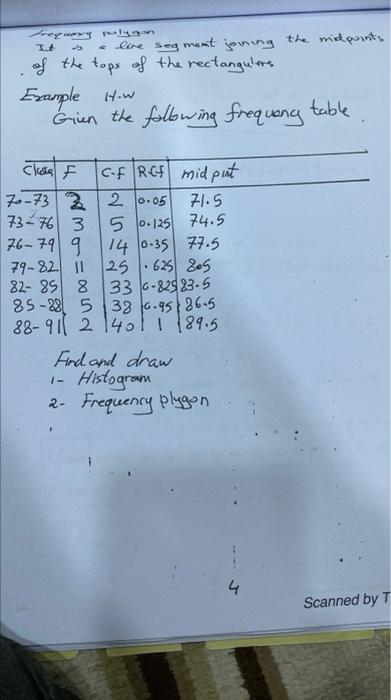 Frequency polygon
It is a line segment joining the midpoints
of the tops of the rectangulers
Example H.w
Given the following frequency table.
Class F C.f R.Cf mid pint
70-73 2 2 0.05 71.5
73-76 3 5 0.125 74.5
76-79 9 14 0.35 77.5
79-82 11 25 .625 805
82-85 8 33 0.825 83.5
85-88 5 38 0.95 86.5
88-91 2 40 1 89.5
Find and draw
1- Histogram
2- Frequency plygon
4
Scanned by T